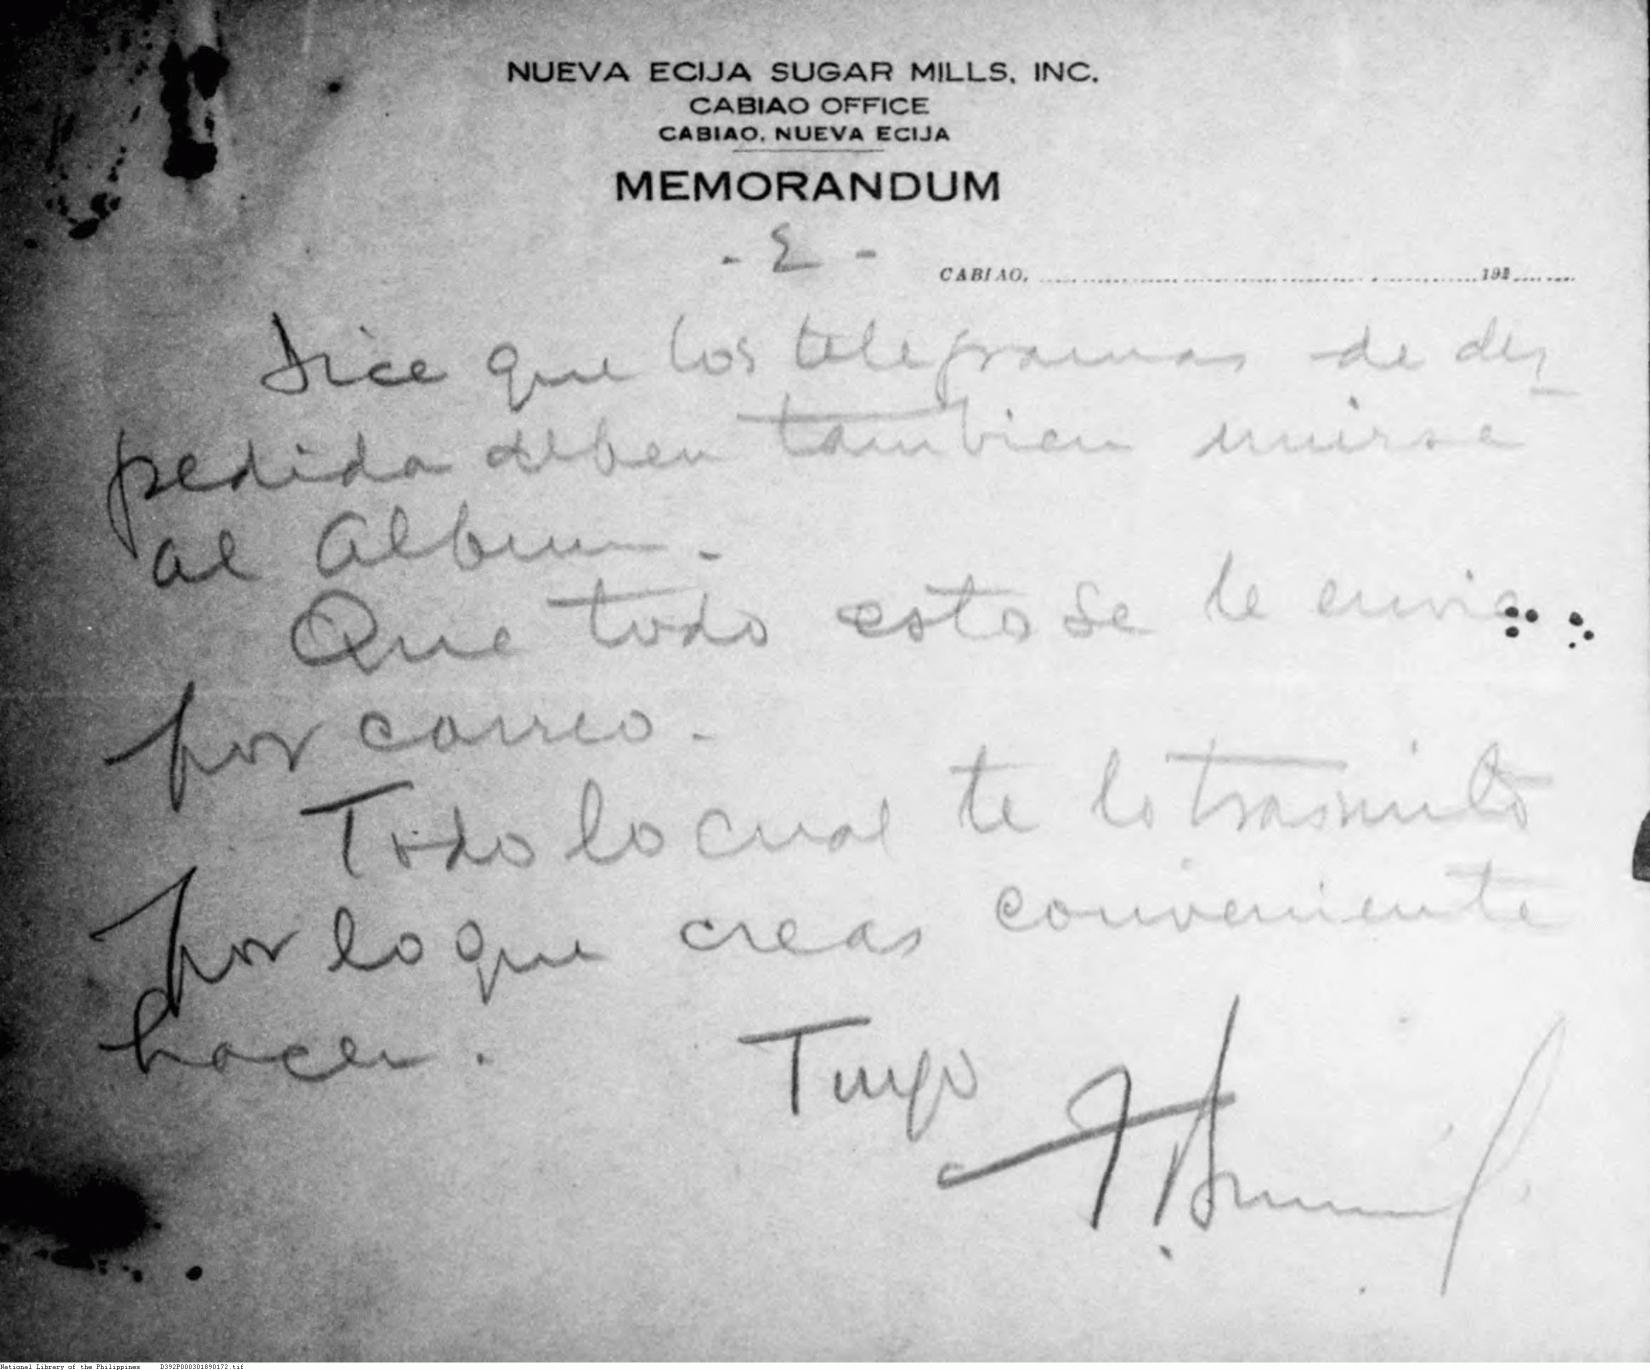 NUEVA ECIJA SUGAR MILLS, INC.
CABIAO OFFICE
CABIAO, NUEVA ECIJA
MEMORANDUM
- 2 -
CABIAO, 192
Dice que los telegramas de des-
pedida deben tambien unirse
al Album.
Que todo esto se le envie
por correo.
Todo lo cual te lo trasmito
por lo que creas conveniente
hacer.
Tuyo
National Library of the Philippines D392P000301890172.tif